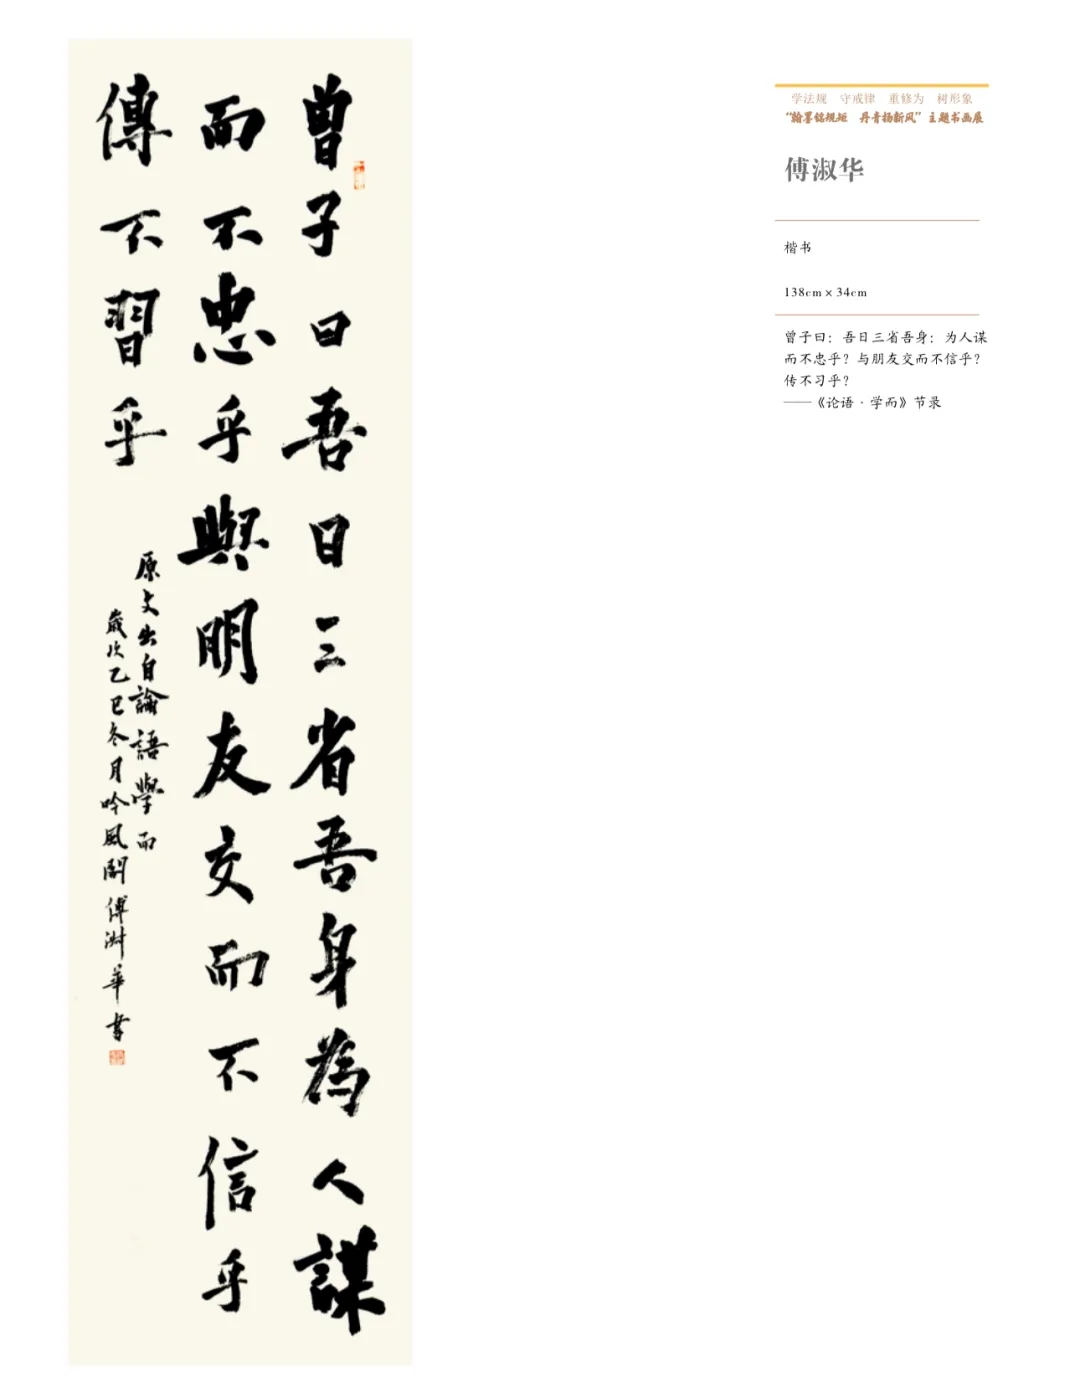 曾子曰吾日三省吾身為人謀
而不忠乎與朋友交而不信乎
傳不習乎
原文出自論語學而
歲次乙巳冬月吟風閣傅淑華書
学法规 守戒律 重修为 树形象
“翰墨铭规矩 丹青扬新风”主题书画展
傅淑华
楷书
138cm×34cm
曾子曰：吾日三省吾身：为人谋
而不忠乎？与朋友交而不信乎？
传不习乎？
——《论语·学而》节录